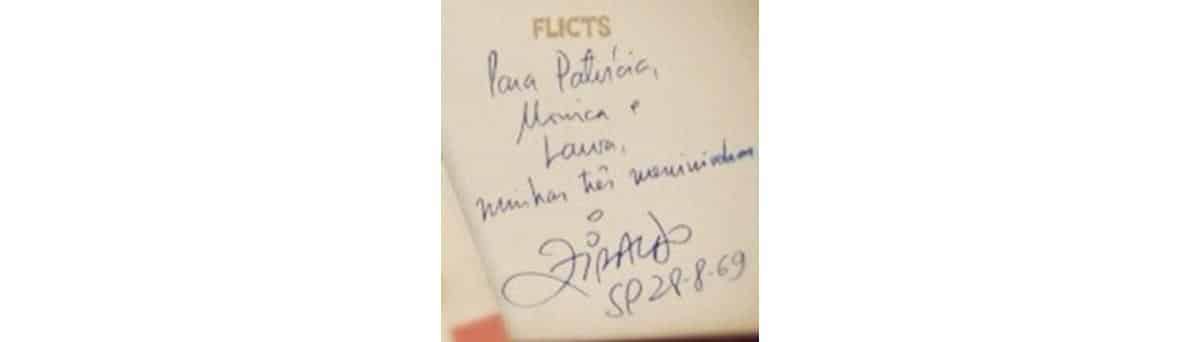 FLICTS
Para Patrícia,
Monica e
Laura,
minhas três menininhas
ZIRALDO
SP 28-8-69